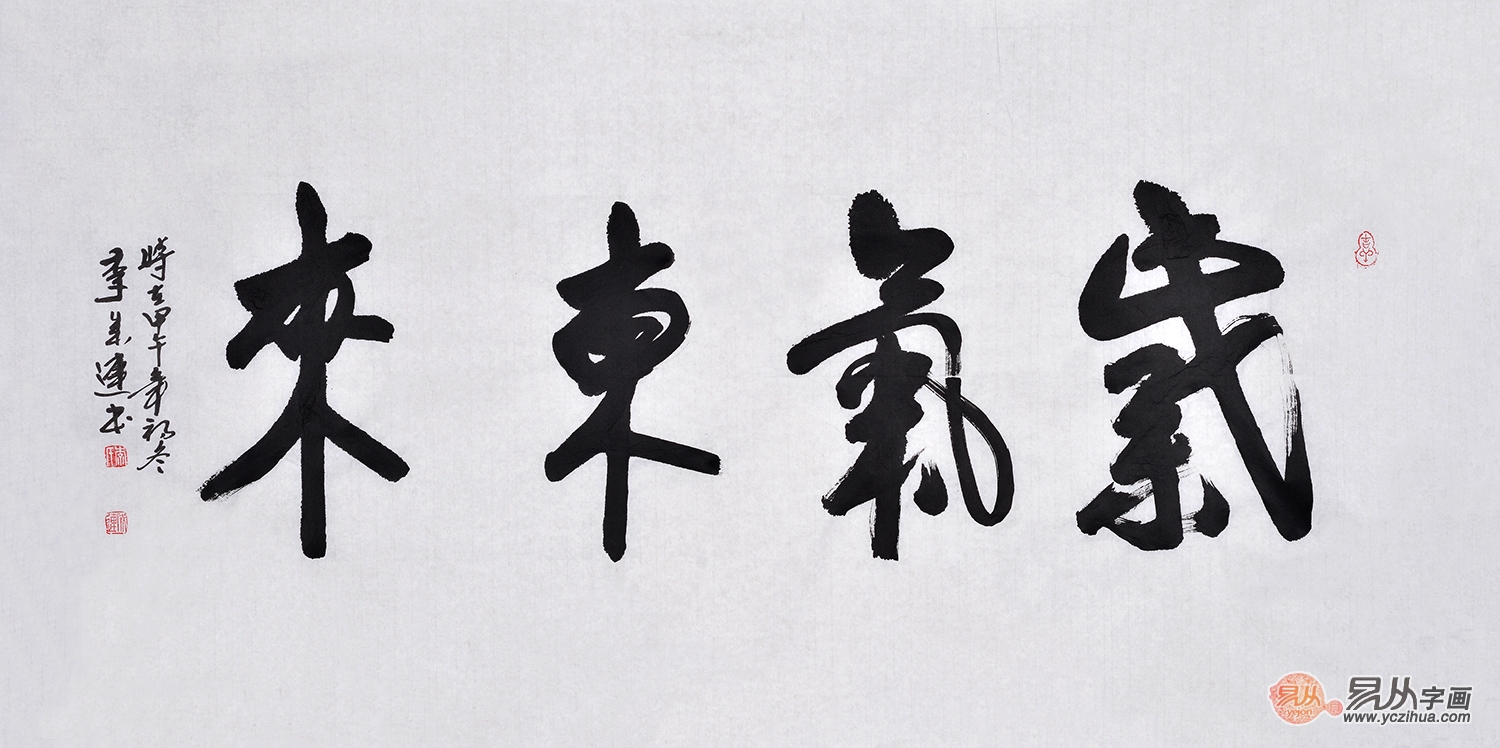 紫氣東來
時在甲午年初冬
李成連书
易从
yejon
易从字画
www.yczihua.com